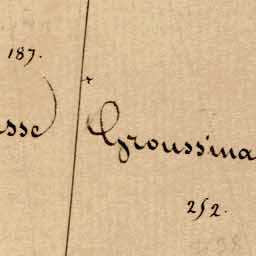 187.
sse
Groussina
252.